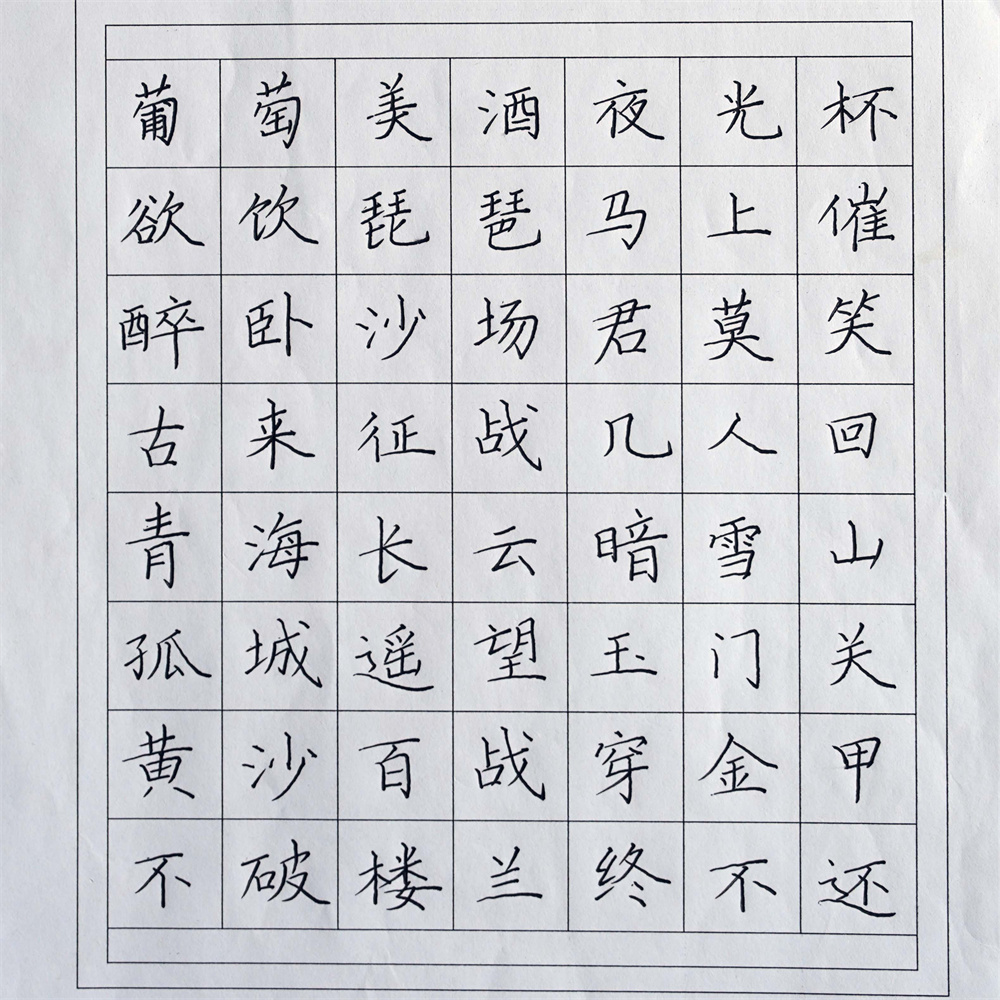 葡萄美酒夜光杯
欲饮琵琶马上催
醉卧沙场君莫笑
古来征战几人回
青海长云暗雪山
孤城遥望玉门关
黄沙百战穿金甲
不破楼兰终不还